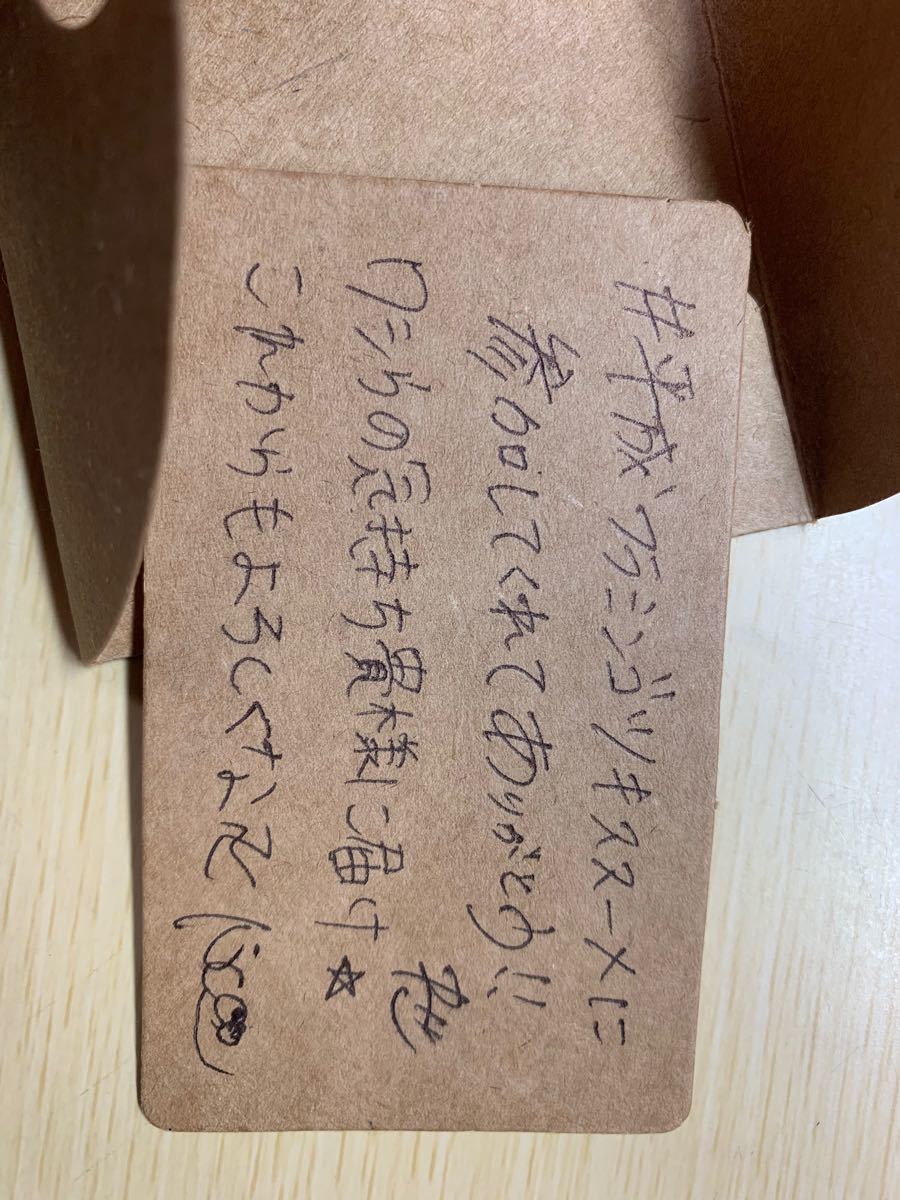 #平成フラミンゴツキススーメに
参加してくれてありがとう!!
ワシらの気持ち貴様に届け☆
これからもよろしく